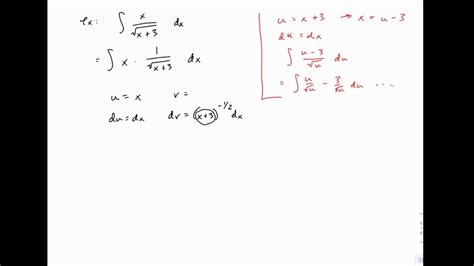 Ex: ∫ x/√(x+3) dx
= ∫ x · 1/√(x+3) dx
u = x v =
du = dx dv = (x+3)^(-1/2) dx
u = x+3 → x = u-3
du = dx
∫ (u-3)/√u du
= ∫ u/√u - 3/√u du ...